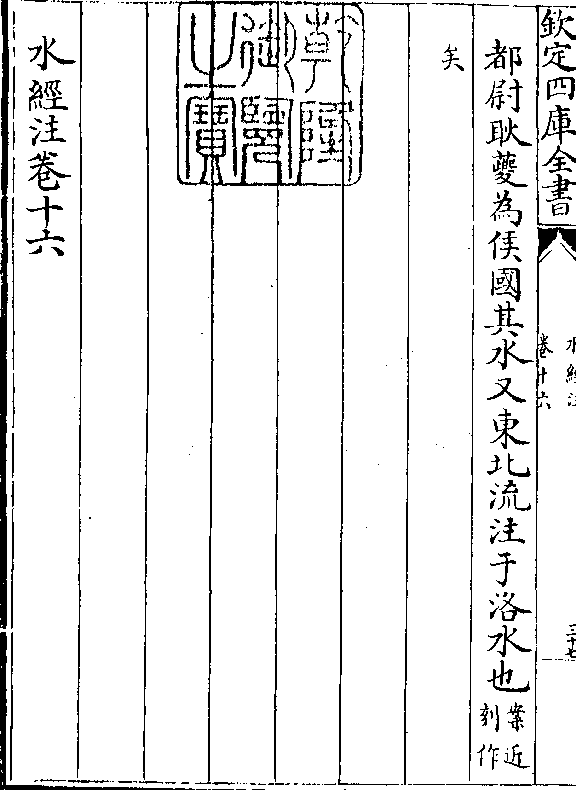 欽定四庫全書
水經注
卷十六
三十七
都尉耿夔為侯國其水又東北流注于洛水也案近刻作
矣
乾隆御覽之寶
水經注卷十六